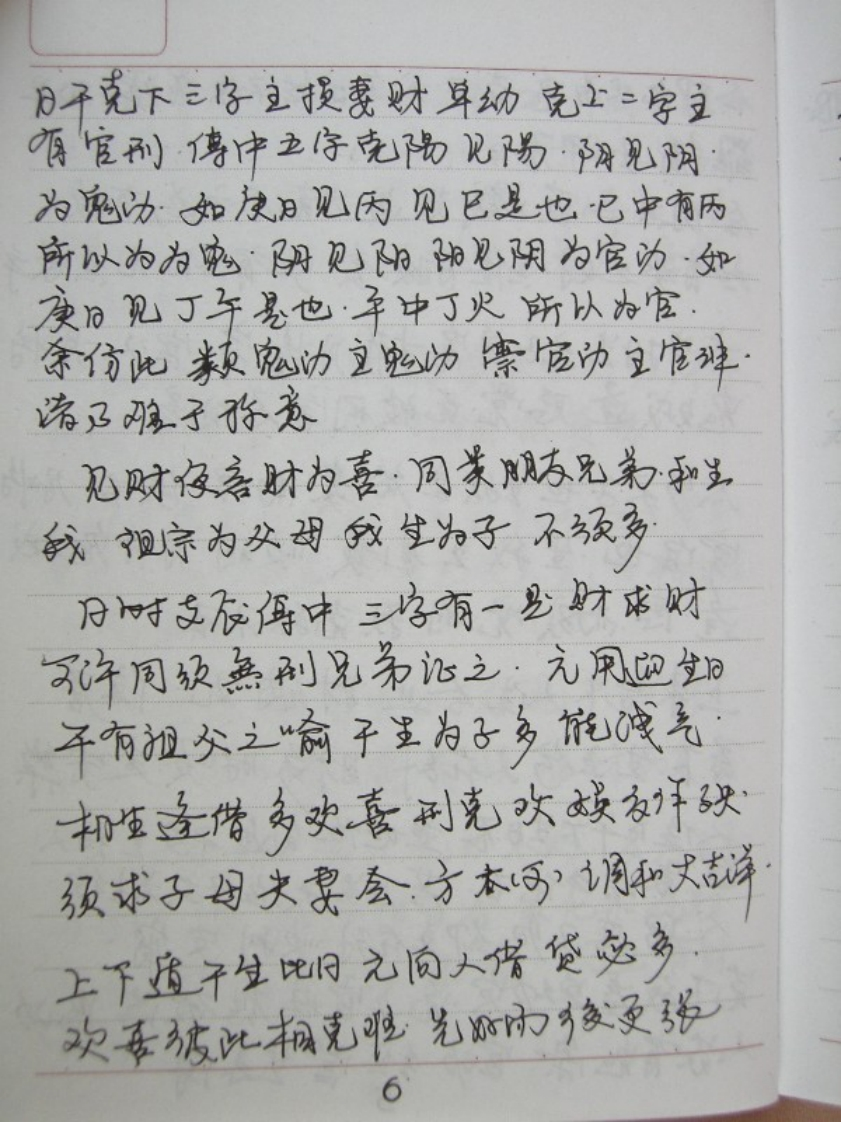 日干克下三字主损妻财卑幼 克上二字主
有官刑 傳中五字克陽见陽·阴见阴·
为鬼动·如庚日见丙见巳是也·巳中有丙
所以为为鬼·阴见阳 阳见阴为官动·如
庚日见丁午是也·午中丁火 所以为官·
余仿此 类鬼动主鬼动 官动主官非·
谋及难于称意
见财便言财为喜·同类朋友兄弟·和生
我 祖宗为父母 我生为子 不须多·
日时支辰傳中 三字有一是财求财
可许同须無刑兄弟证之·元用 生日
干有祖父之喻 干生为子多能减气·
相生逢借多欢喜 刑克欢娱
须求子母夫妻会·方 调和大吉祥·
上下遁干生比日 元向人借贷必多·
欢喜彼此相克难 先好而後更张
6